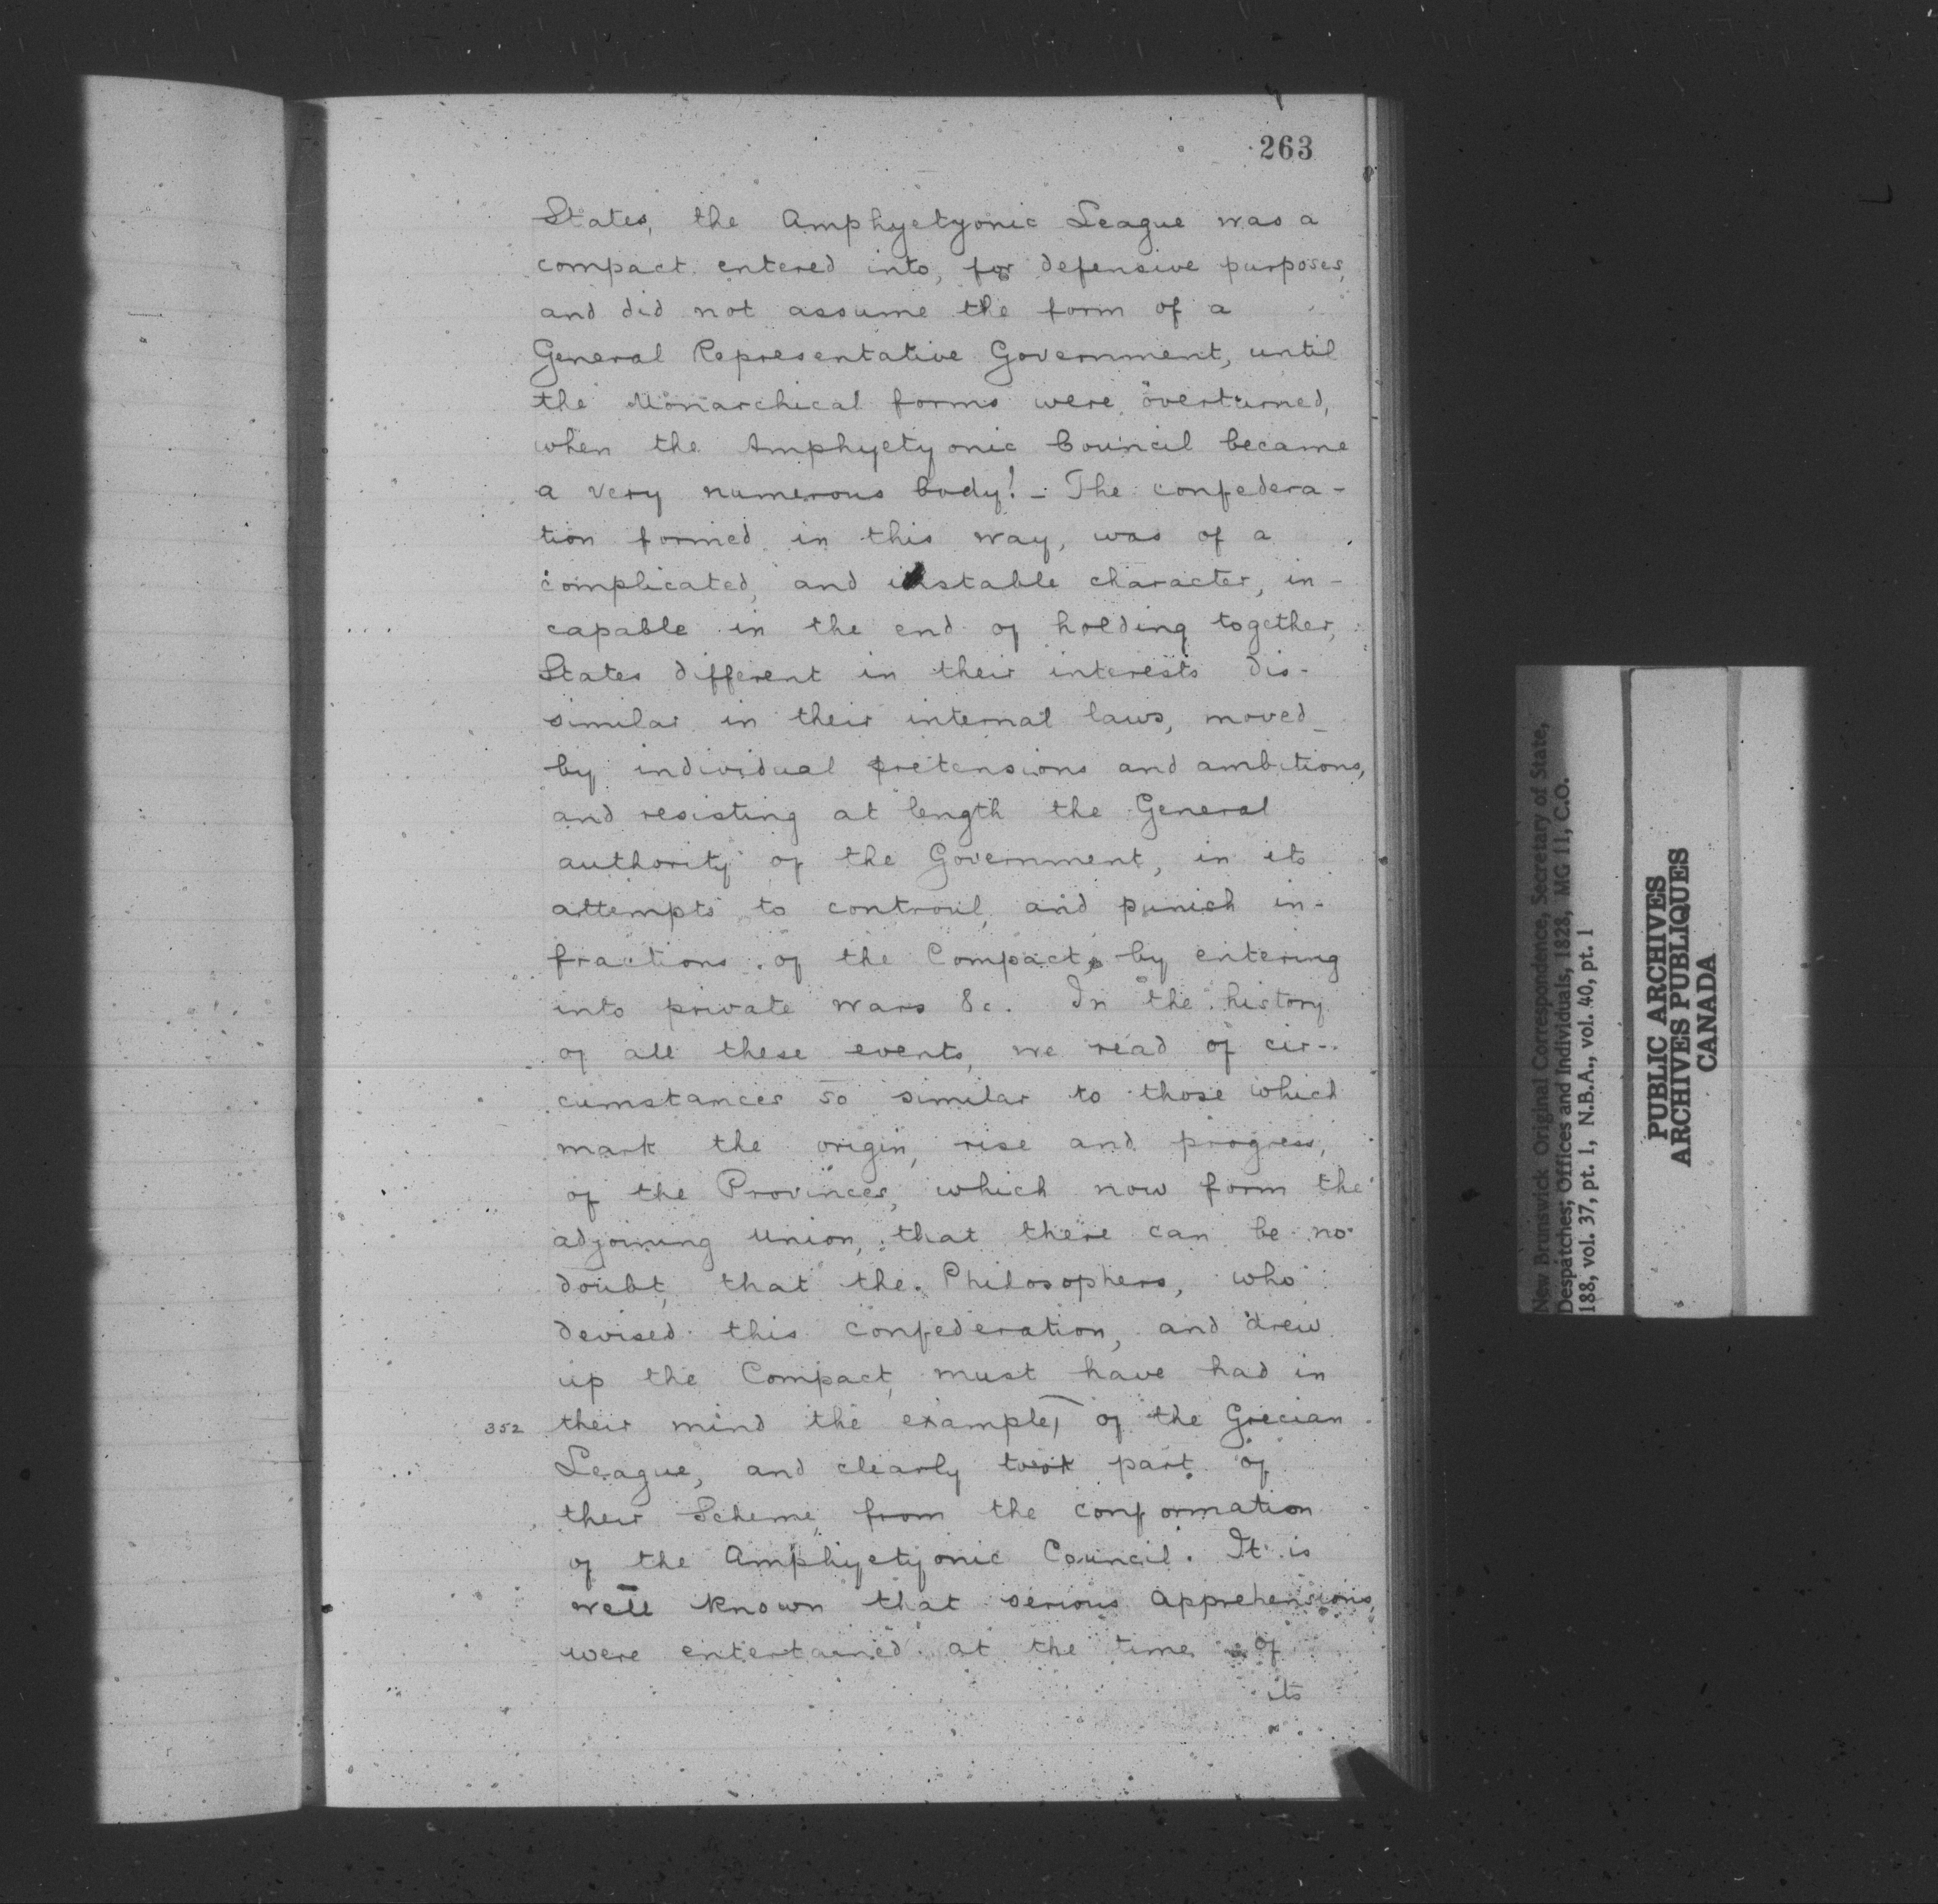 263
States, the Amphyctyonic League was a
compact entered into, for defensive purposes,
and did not assume the form of a
General Representative Government, until
the Monarchical forms were overturned,
when the Amphyctyonic Council became
a very numerous body! - The confedera-
tion formed in this way, was of a
complicated, and instable character, in-
capable in the end of holding together,
States different in their interests dis-
similar in their internal laws, moved
by individual pretensions and ambitions,
and resisting at length the General
authority of the Government, in its
attempts to controul, and punish in-
fractions of the Compact, by entering
into private wars &c. In the history
of all these events, we read of cir-
cumstances so similar to those which
mark the origin, rise and progress,
of the Provinces, which now form the
adjoining Union, that there can be no
doubt, that the Philosophers, who
devised this confederation, and drew
up the Compact, must have had in
352 their mind the example, of the Grecian
League, and clearly took part of
their Scheme, from the conformation
of the Amphyctyonic Council. It is
well known that serious apprehensions,
were entertained at the time of
its
New Brunswick Original Correspondence, Secretary of State,
Despatches; Offices and Individuals, 1828, MG 11, C.O.
188, vol. 37, pt. 1, N.B.A., vol. 40, pt. 1
PUBLIC ARCHIVES
ARCHIVES PUBLIQUES
CANADA